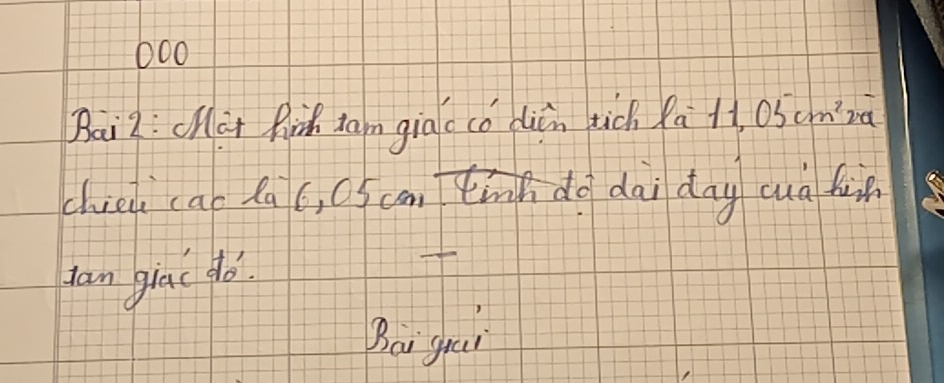 000
Bài 2: Một hình tam giác có diện tích là 11,05 cm² và
chiều cao là 6,05 cm. Tính độ dài đáy của hình
tam giác đó.
Bài giải